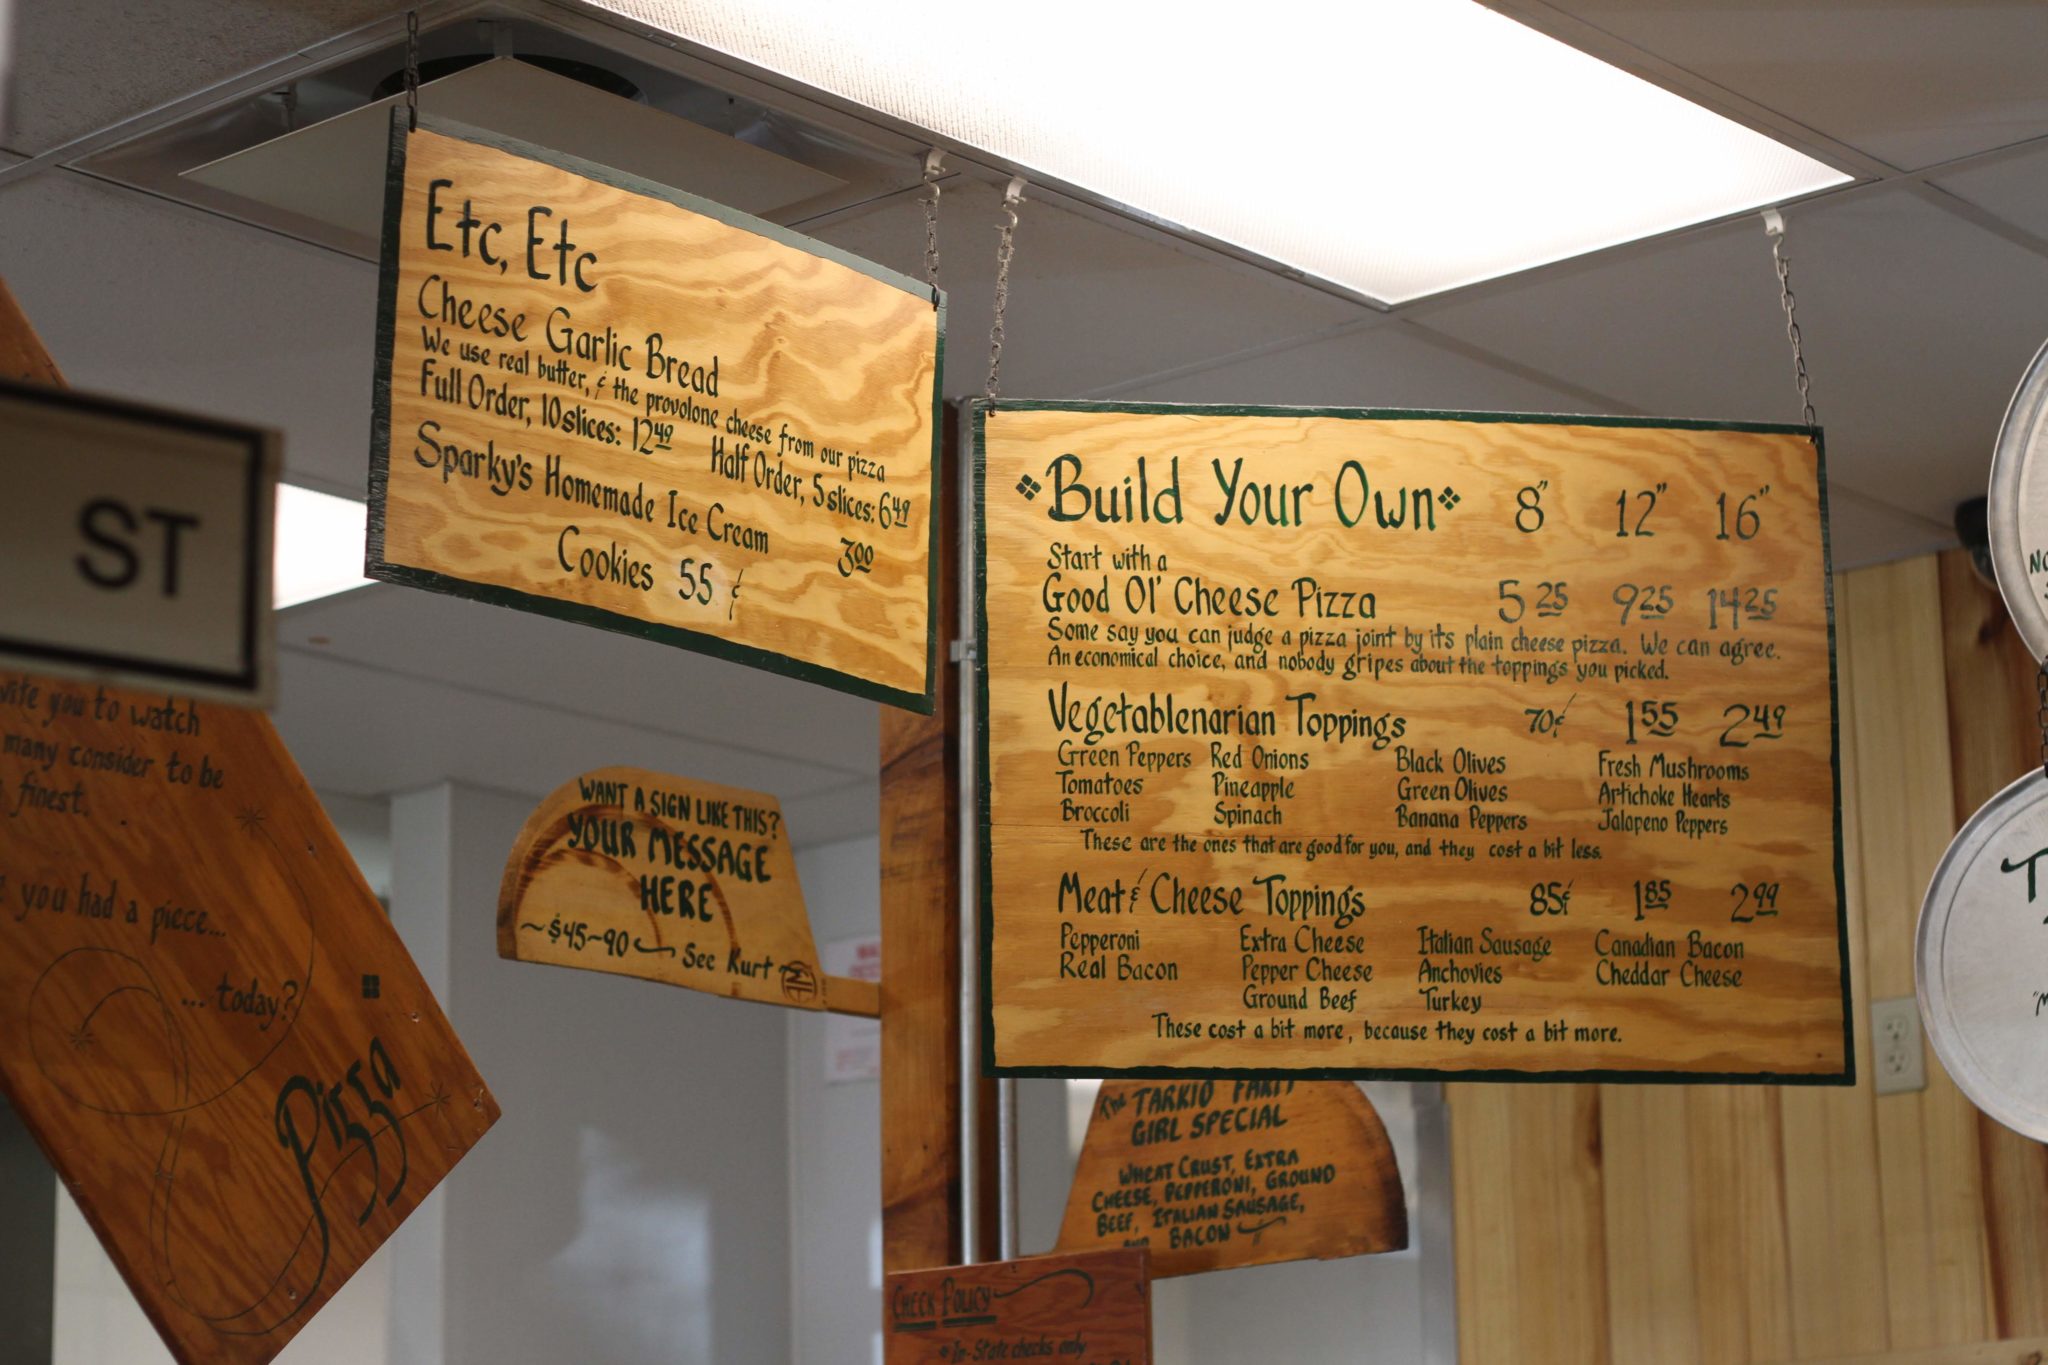 Etc, Etc
Cheese Garlic Bread
We use real butter, & the provolone cheese from our pizza
Full Order, 10 slices: 12.49 Half Order, 5 slices: 6.49
Sparky's Homemade Ice Cream 3.00
Cookies 55 ¢
Build Your Own 8" 12" 16"
Start with a
Good Ol' Cheese Pizza 5.25 9.25 14.25
Some say you can judge a pizza joint by its plain cheese pizza. We can agree.
An economical choice, and nobody gripes about the toppings you picked.
Vegetablenarian Toppings 70¢ 1.55 2.49
Green Peppers Red Onions Black Olives Fresh Mushrooms
Tomatoes Pineapple Green Olives Artichoke Hearts
Broccoli Spinach Banana Peppers Jalapeno Peppers
These are the ones that are good for you, and they cost a bit less.
Meat & Cheese Toppings 85¢ 1.85 2.99
Pepperoni Extra Cheese Italian Sausage Canadian Bacon
Real Bacon Pepper Cheese Anchovies Cheddar Cheese
Ground Beef Turkey
These cost a bit more, because they cost a bit more.
ST
you to watch
many consider to be
finest.
you had a piece...
... today?
Pizza
WANT A SIGN LIKE THIS?
YOUR MESSAGE
HERE
~$45~90 See Kurt
The TARKIO
GIRL SPECIAL
WHEAT CRUST, EXTRA
CHEESE, PEPPERONI, GROUND
BEEF, ITALIAN SAUSAGE,
AND BACON
CHECK POLICY
In-State checks only